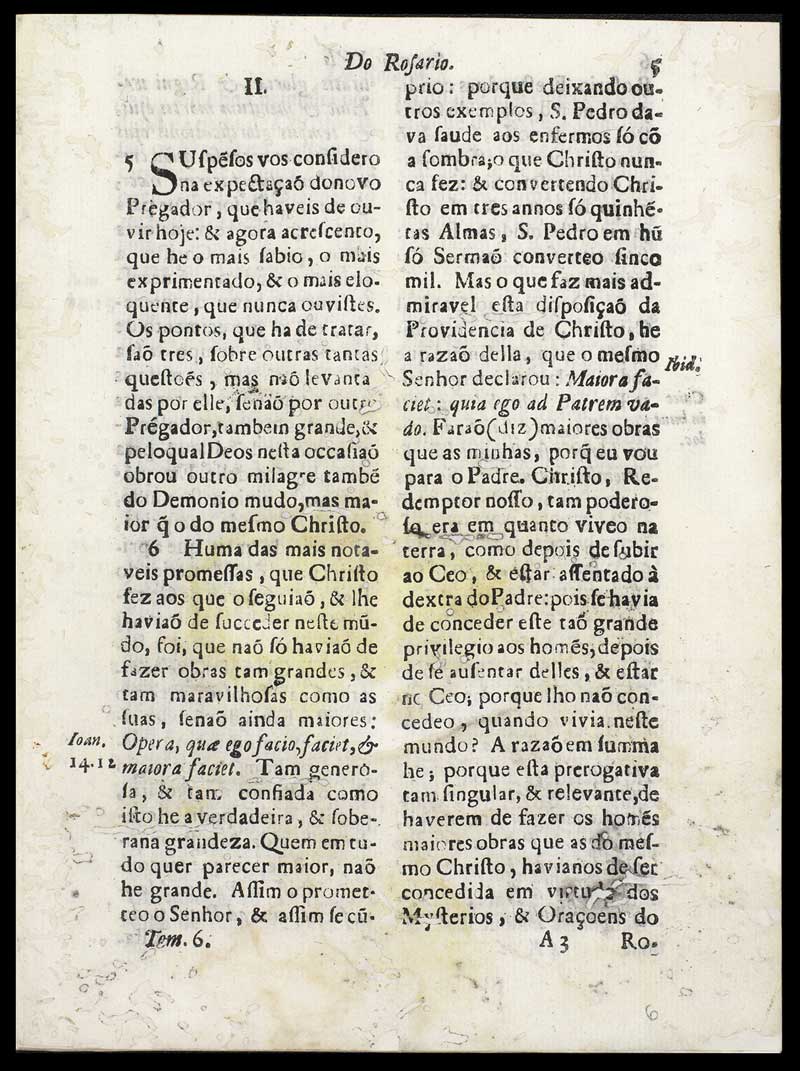 Do Roſario. 5
II.
5 SUſpẽſos vos conſidero
na expectaçaõ do novo
Prégador, que haveis de ou-
vir hoje: & agora acreſcento,
que he o mais ſabio, o mais
exprimentado, & o mais elo-
quente, que nunca ouviſtes.
Os pontos, que ha de tratar,
ſaõ tres, ſobre outras tantas
queſtoẽs, mas naõ levanta
das por elle, ſenaõ por outro
Prégador, tambem grande, &
pelo qual Deos neſta occaſiaõ
obrou outro milagre tambẽ
do Demonio mudo, mas ma-
ior q̃ o do meſmo Chriſto.
6 Huma das mais nota-
veis promeſſas, que Chriſto
fez aos que o ſeguiaõ, & lhe
haviaõ de ſucceder neſte mũ-
do, foi, que naõ ſó haviaõ de
fazer obras tam grandes, &
tam maravilhoſas como as
ſuas, ſenaõ ainda maiores:
Ioan. 14.12
Opera, quæ ego facio, faciet, &
maiora faciet. Tam genero-
ſa, & tam confiada como
iſto he a verdadeira, & ſobe-
rana grandeza. Quem em tu-
do quer parecer maior, naõ
he grande. Aſſim o promet-
teo o Senhor, & aſſim ſe cũ-
Tem. 6.
prio: porque deixando ou-
tros exemplos, S. Pedro da-
va ſaude aos enfermos ſó cõ
a ſombra; o que Chriſto nun-
ca fez: & convertendo Chri-
ſto em tres annos ſó quinhẽ-
tas Almas, S. Pedro em hũ
ſó Sermaõ converteo ſinco
mil. Mas o que faz mais ad-
miravel eſta diſpoſiçaõ da
Providencia de Chriſto, he
a razaõ della, que o meſmo
Ibid.
Senhor declarou: Maiora fa-
ciet: quia ego ad Patrem va-
do. Faraõ (diz) maiores obras
que as minhas, porq̃ eu vou
para o Padre. Chriſto, Re-
demptor noſſo, tam podero-
ſo era em quanto viveo na
terra, como depois de ſubir
ao Ceo, & eſtar aſſentado à
dextra do Padre: pois ſe havia
de conceder eſte taõ grande
privilegio aos homẽs, depois
de ſe auſentar delles, & eſtar
no Ceo; porque lho naõ con-
cedeo, quando vivia neſte
mundo? A razaõ em ſumma
he; porque eſta prerogativa
tam ſingular, & relevante, de
haverem de fazer os homẽs
maiores obras que as do meſ-
mo Chriſto, havianos de ſer
concedida em virtude dos
Myſterios, & Oraçoens do
A 3 Ro-
6